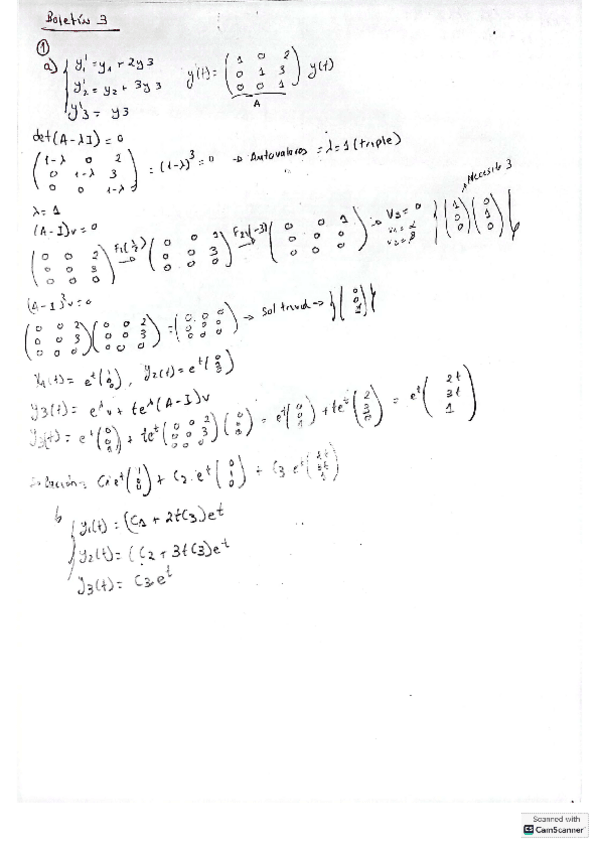 Boletín 3
①
a) { y₁' = y₁ + 2y₃
y₂' = y₂ + 3y₃
y'₃ = y₃
y'(t) = ( 1 0 2 / 0 1 3 / 0 0 1 ) y(t)
A
det(A-λI) = 0
( 1-λ 0 2 / 0 1-λ 3 / 0 0 1-λ ) = (1-λ)³ = 0 → Autovalores = λ=1 (triple)
λ = 1
(A-I)v = 0
Necesito 3
( 0 0 2 / 0 0 3 / 0 0 0 ) F₁(½) → ( 0 0 1 / 0 0 3 / 0 0 0 ) F₂₁(-3) → ( 0 0 1 / 0 0 0 / 0 0 0 ) → V₃ = 0 { ( 1 / 0 / 0 ) ( 0 / 1 / 0 ) }
(A-I)²v = 0
( 0 0 2 / 0 0 3 / 0 0 0 ) ( 0 0 2 / 0 0 3 / 0 0 0 ) = ( 0 0 0 / 0 0 0 / 0 0 0 ) → → { ( 0 / 0 / 1 ) }
y₁(t) = eᵗ ( 1 / 0 / 0 ), y₂(t) = eᵗ
y₃(t) = e^λ v + te^λ (A-I)v
y₃(t) = eᵗ ( 0 / 0 / 1 ) + teᵗ ( 0 0 2 / 0 0 3 / 0 0 0 ) ( 0 / 0 / 1 ) = eᵗ ( 0 / 0 / 1 ) + teᵗ ( 2 / 3 / 0 ) = eᵗ ( 2t / 3t / 1 )
C₁eᵗ ( 1 / 0 / 0 ) + C₂·eᵗ ( 0 / 1 / 0 ) + C₃ eᵗ ( 2t / 3t / 1 )
{ y₁(t) = (C₁ + 2tC₃)eᵗ
y₂(t) = (C₂ + 3tC₃)eᵗ
y₃(t) = C₃·eᵗ
Scanned with
CS CamScanner